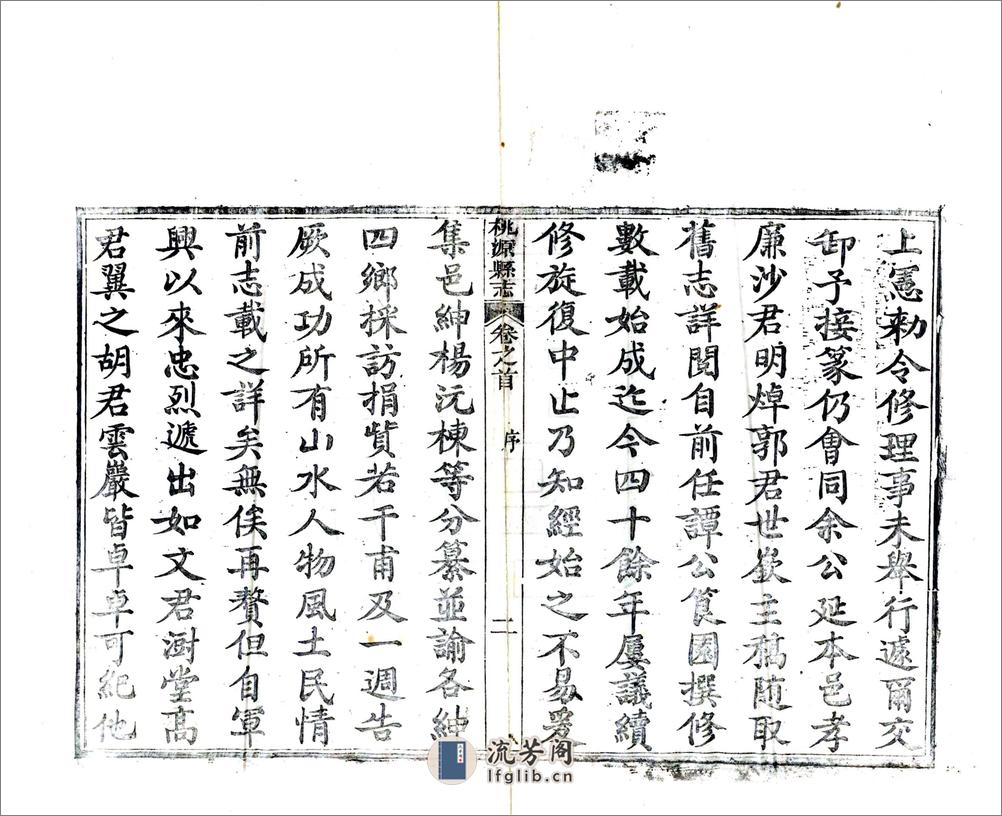 上憲勅令修理事未舉行遽爾交
卸予接篆仍會同余公延本邑孝
廉沙君明焯郭君世嶔主稿随取
舊志詳閱自前任譚公筤園撰修
數載始成迄今四十餘年屢議續
修旋復中止乃知經始之不易爰
桃源縣志 卷之首 序 二
集邑紳楊沅棟等分纂並諭各紳
四鄉採訪捐貲若干甫及一週告
厥成功所有山水人物風土民情
前志載之詳矣無俟再贅但自軍
興以來忠烈遞出如文君澍堂高
君翼之胡君雲巖皆卓卓可紀他
流芳阁
lfglib.cn